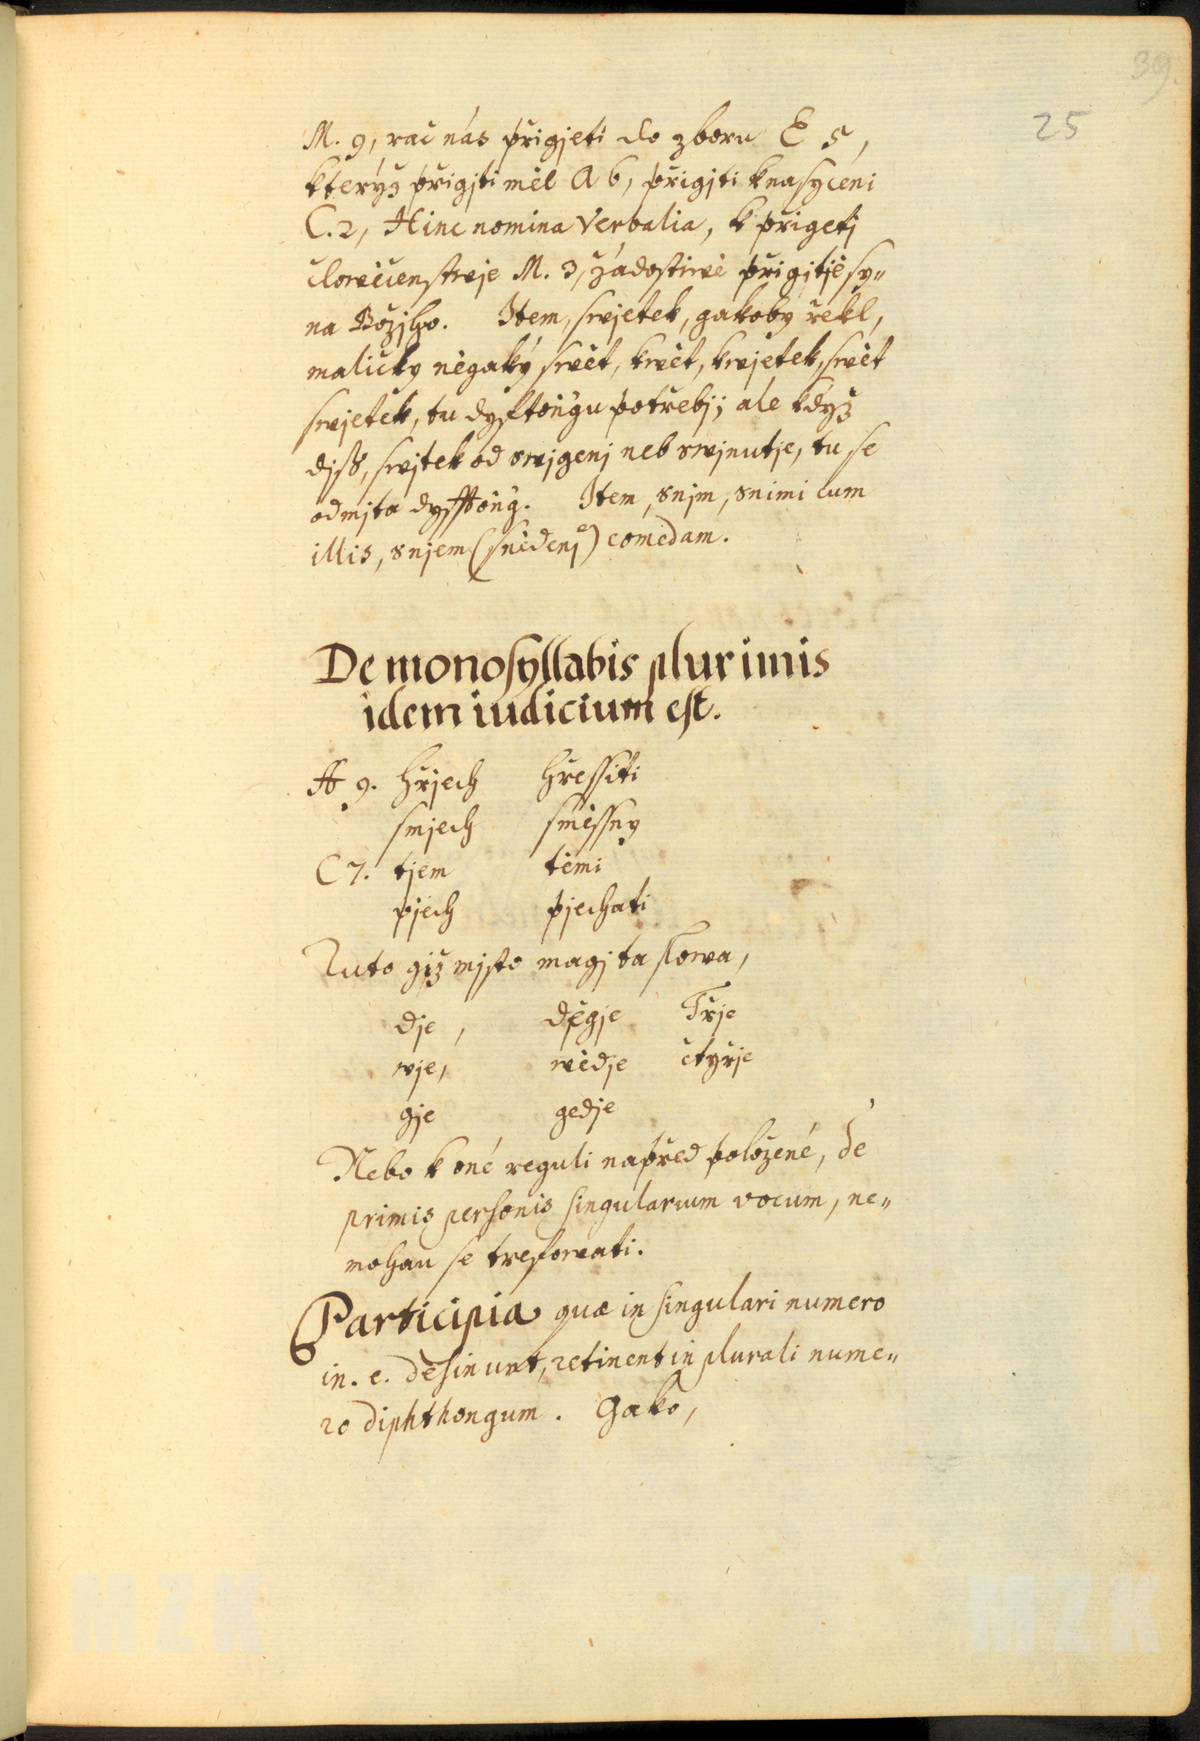 39.
25
M. 9, rač nás přigjeti do zboru E 5,
kterýž přigjti měl A 6, přigjti k nasyceni
C. 2, Hinc nomina Verbalia, k přigetj
člowěčenstwje M. 3, žádostiwé přigjtjé sy„
na Božjho. Item, swjetek, gakoby řekl,
maličky něgaký swět, kwět, kwjetek, swět
swjetek, tu dyftongu potřebj; ale když
djß, swjtek od swjgenj neb swjnutje, tu se
odmjta dyfftong. Item, snjm, snimi cum
illis, snjem (snědenj) comedam.
De monosyllabis plurimis
idem iudicium est.
H 9. hřjech hřessiti
smjech směssny
C 7. tjem těmi
pjech pjechati
Tuto giž mjsto magj ta slowa,
dje, děgje Třje
wje, wědje čtyřje
gje gedje
Nebo k oné reguli napřed položené, de
primis personis singularium vocum, ne„
mohau se tresfowati.
Participia quæ in singulari numero
in. e. desinunt, retinent in plurali nume„
ro diphthongum. Gako,
MZK MZK